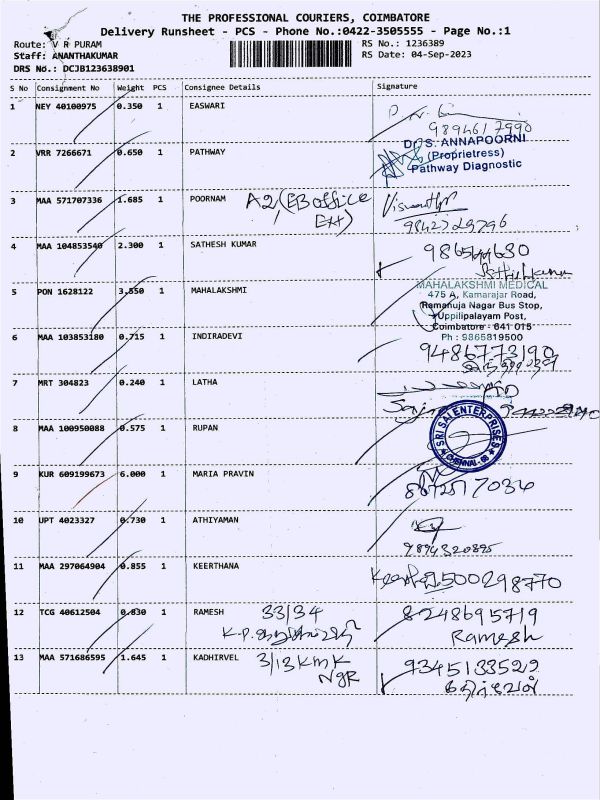 THE PROFESSIONAL COURIERS, COIMBATORE
Delivery Runsheet - PCS - Phone No.:0422-3505555 - Page No.:1
Route: V R PURAM
RS No.: 1236389
Staff: ANANTHAKUMAR
RS Date: 04-Sep-2023
DRS No.: DCJB123638901
S No Consignment No Weight PCS Consignee Details Signature
1 NEY 40100975 0.350 1 EASWARI
9894617990
2 VRR 7266671 0.650 1 PATHWAY
Dr. S. ANNAPOORNI
(Proprietress)
Pathway Diagnostic
3 MAA 571707336 1.685 1 POORNAM A2, (EB office
Ext)
9842729796
4 MAA 104853540 2.300 1 SATHESH KUMAR
5 PON 1628122 3.550 1 MAHALAKSHMI
MAHALAKSHMI MEDICAL
475 A, Kamarajar Road,
Ramanuja Nagar Bus Stop,
Uppilipalayam Post,
Coimbatore - 641 015
Ph : 9865819500
6 MAA 103853180 0.715 1 INDIRADEVI 9486773190
7 MRT 304823 0.240 1 LATHA
8 MAA 100950088 0.575 1 RUPAN
SRI SAI ENTERPRISES
CHENNAI - 68
9 KUR 609199673 6.000 1 MARIA PRAVIN
10 UPT 4023327 0.730 1 ATHIYAMAN
9894320895
11 MAA 297064904 0.855 1 KEERTHANA
12 TCG 40612504 0.830 1 RAMESH 33/34 8248695719
Ramesh
13 MAA 571686595 1.645 1 KADHIRVEL 3/13 KMK 9345133529
NGR கதிர்வேல்